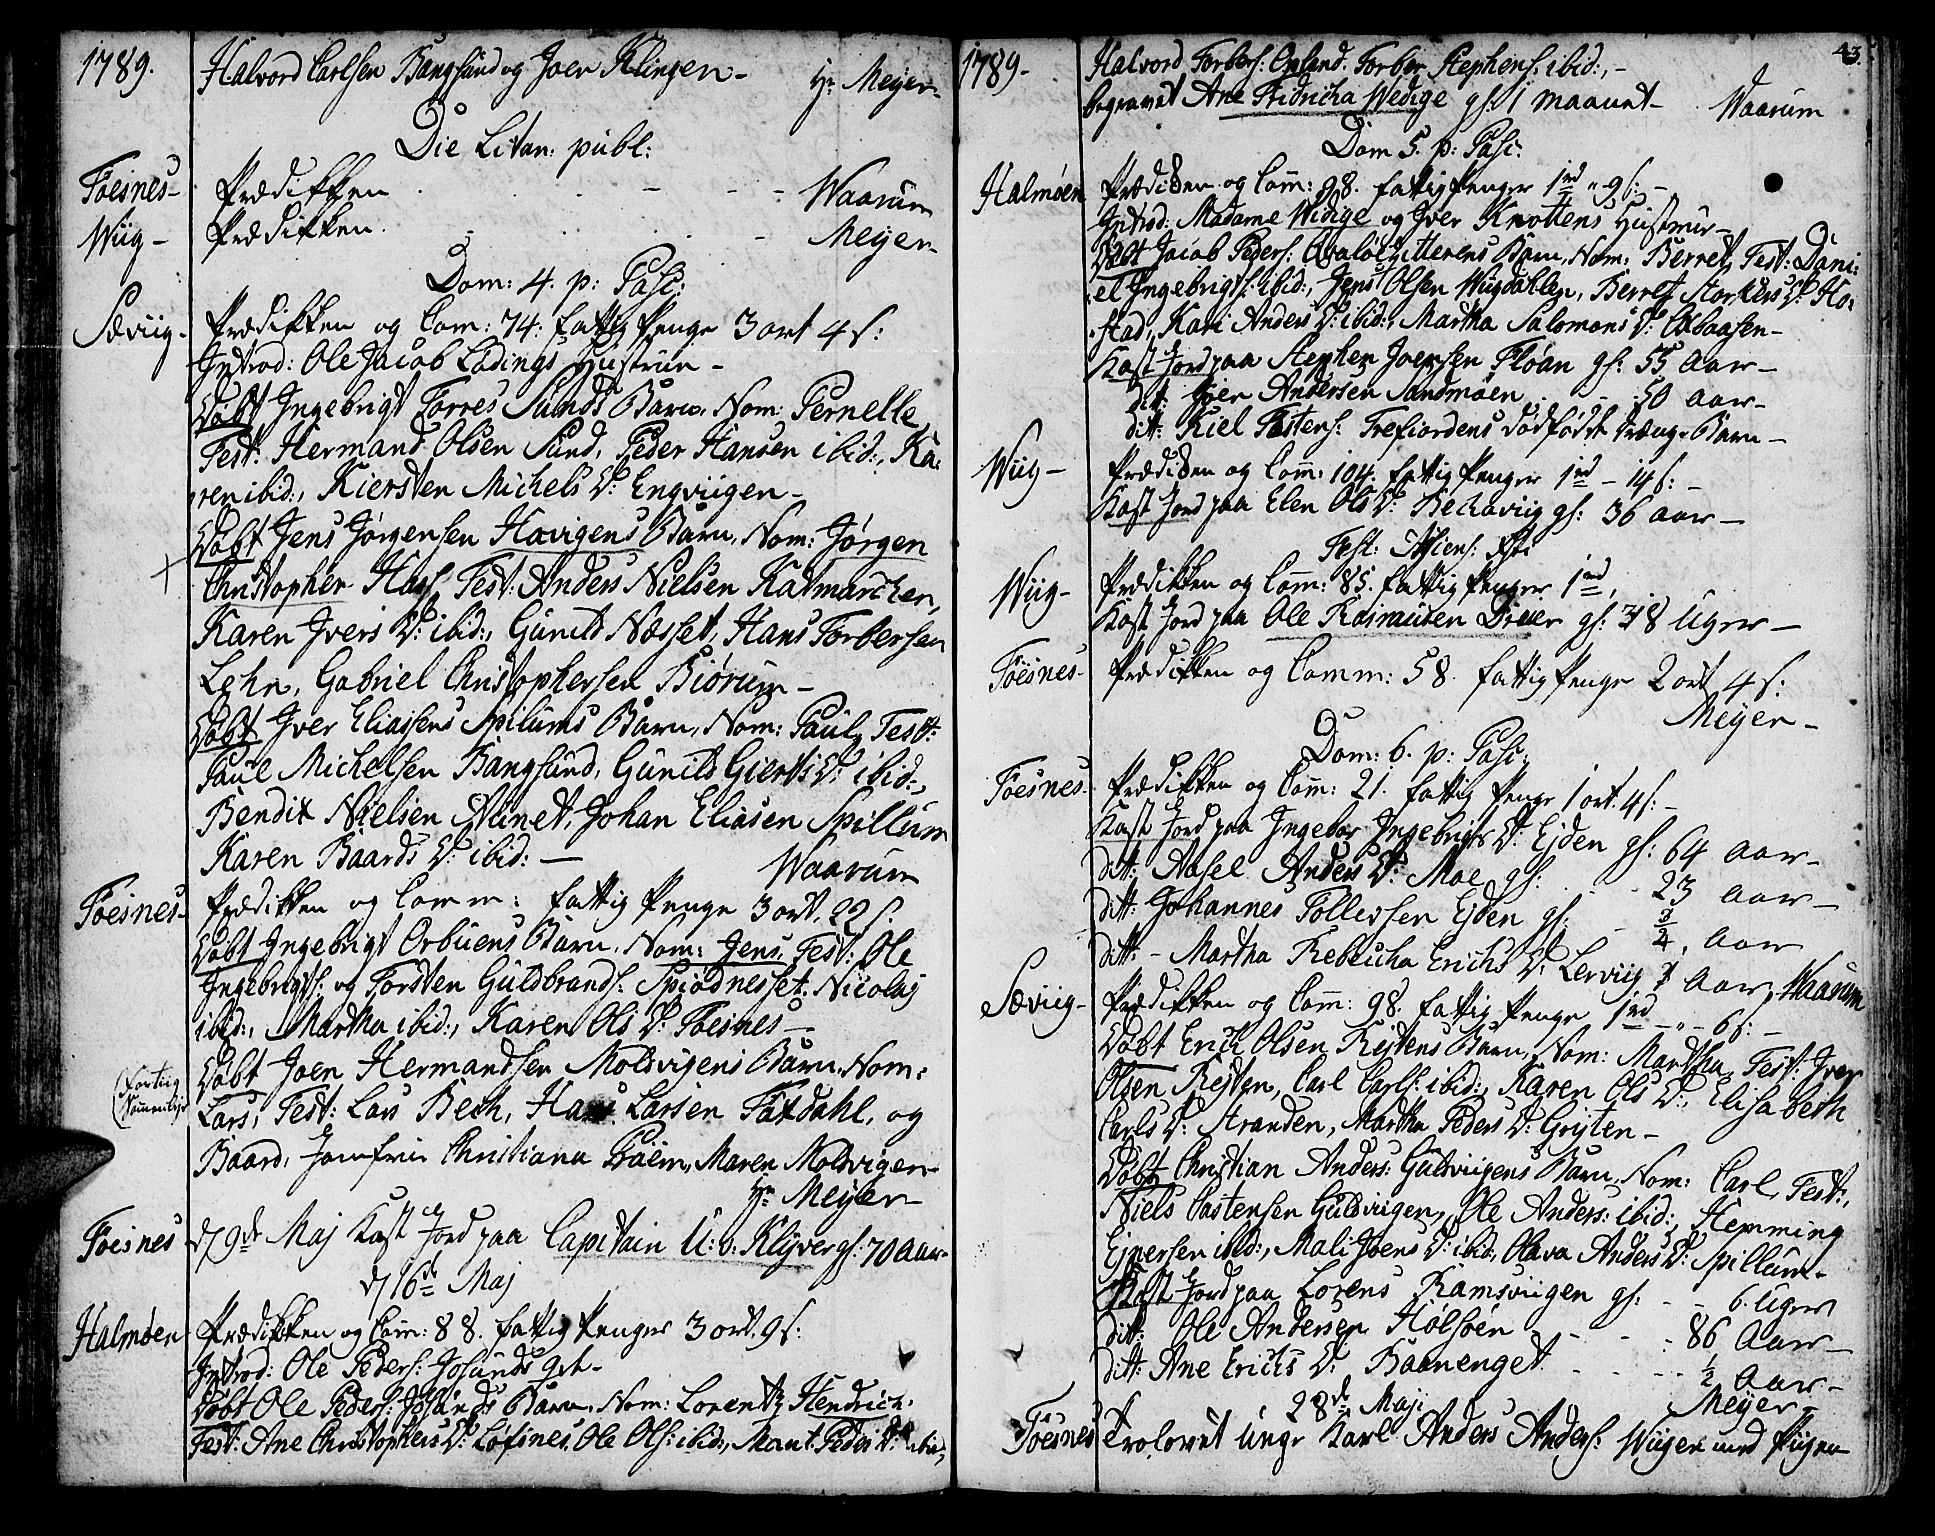 1789.
Halvord Carlsen Bangsund og Joen Klingen-
Hr Meyer-
Die Litan: publ:
Foesnes-
Prædikken - - - Waarum
Wiig-
Prædikken. - - Meyer-
Dom: 4. p: Pasc:
Sæviig-
Prædikken og Com: 74: fattig Penge 3 ort 4 s:
Introd: Ole Jacob Ladings Hustrue-
Døbt Ingebrigt Torres Sunds Barn, Nom: Pernelle,
Test: Hermand Olsen Sund, Peder Hansen ibid:, Ka:
ren ibid:, Kiersten Michels D: Engviigen-
Døbt Jens Jørgensen Havigens Barn, Nom: Jørgen
Christopher Test: Anders Nielsen Katmarchen,
Karen Ivers D: ibid:, Gunild Næsset, Hans Torbersen
Lehn, Gabriel Christophersen Biørum-
Døbt Iver Eliassens Spilums Barn, Nom: Paul, Test:
Paul Michelsen Bangsund, Gunild Gierts D: ibid:,
Bendix Nielsen Johan Eliasen Spillum
Karen Baards D: ibid:-
Waarum
Foesnes-
Prædikken og Comm: fattig Penge 3 ort, 22 s.
Døbt Ingebrigt Orbuens Barn, Nom: Jens, Test: Ole
Ingebrigts: og Torsten Guldbrands: Spiødnesset: Nicolaj
ibid:, Martha ibid:, Karen Ols D: Foesnes-
Døbt Joen Hermandsen Molsvigens Barn, Nom:
Lars, Test: Lars Bech, Hans Larsen Faxdahl, og
Baard, Jomfrue Christiana Maren Molsvigen-
Hr Meyer-
Foesnes
d 9de Maj Kast Jord paa Capitain U: v: Klyver gs: 70 Aar-
d 16de Maj
Halmøen
Prædikken og Com: 88. fattig Penger 3 ort. 9 s:
Introd: Ole Peders: Josunds
Døbt Ole Peders: Josunds Barn, Nom: Lorentz Hendrich.
Test: Ane Christophers D: Løfsnes, Ole Ols: ibid:, Peders D: ibid:,
43.
1789-
Halvord Torbers: Opland. Torber Stephens: ibid:,-
begravet Ane Fridricha Wedige gs: 1 maanet- Waarum
Dom 5. p: Pasc:
Halmøen
Prædiken og Com: 98. fattig Penger 1 rd „ 9 s:-
Introd: Madame Widige og Iver Knottens Hustruer-
Døbt Jacob Peders: Barn, Nom: Berret, Test: Dani:
el Ingebrigts: ibid:, Jens Olsen Wiigdahlen, Berret Storkers D: Ho:
stad, Kari Anders D: ibid:, Martha Salomons D: Oxbaasen-
Kast Jord paa Stephen Joensen Fløan gs: 55 Aar-
dit: Iver Andersen Sandmøen - - 50 aar-
dit: Kiel Trefiordens dødfødt drænge Barn-
Wiig-
Prædiken og Com: 104. fattig Penger 1 rd - 14 s:-
Kast Jord paa Elen Ols D: gs: 36 aar-
Fest: Assens: Xsti
Wiig-
Prædikken og Com: 85. fattig Penger 1 rd,
Kast Jord paa Ole Rasmussen Dreier gs: 8 Uger-
Foesnes-
Prædikken og Comm: 58. fattig Penge 2 ort 4 s:
Meyer-
Dom: 6. p: Pasc:
Foesnes-
Prædikken og Com: 21. fattig Penge 1 ort. 4 s:-
Kast Jord paa Ingebor Ingebrigts D: Ejden gs: 64 Aar-
ditt: Aasel Anders D: Moe gs: - 23 Aar-
ditt: Johannes Tollefsen Ejden gs: - 3/4, Aar
ditt- Martha Rebecha Erichs D: Lerviig Aar, Waarum
Sæviig-
Prædikken og Com: 98. fattig Penge 1 rd - „ - 6 s:-
Døbt Erich Olsen Restens Barn, Nom: Martha, Test: Iver
Olsen Resten, Carl Carls: ibid:, Karen Ols D:, Elisabeth
Carls D: Stranden, Martha Peders D: Grijten-
Døbt Christian Anders: Guldviigens Barn, Nom: Carl, Test:,
Niels Castensen Guldvigen, Ole Anders: ibid:, Hemming
Ejnersen ibid:, Mali Joens D: ibid:, Olava Anders D: Spillum-
Kast Jord paa Lorens Ramsviigen gs: - - 6. Uger
ditt: Ole Andersen Holsøen - - - 86 Aar-
ditt: Ane Erichs D: Baanenget - - - 1/2 Aar-
Meyer-
28de Maji
Foesnes
Trolovet unge Karl Anders Anders: Wiigen med Pigen